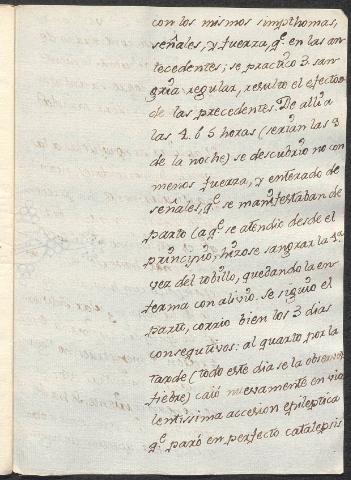 con los mismos simpthomas,
señales, y fuerza, q.e en las an-
tecedentes; se practicó 3. san-
gria regular, resultó el efecto
de las precedentes. De alli a
las 4. ó 5 horas (serian las 9
de la noche) se descubrio no con
menos fuerza, y enterado de
señales, q.e se manifestaban de
parto (a q.e se atendio desde el
principio) hizose sangrar la 4.a
vez del tobillo, quedando la en-
ferma con alivio. Se siguió el
parto, corrio bien los 3 dias
consequtivos: al quarto, por la
tarde (todo este dia se la observó
fiebre) caió nuevamente en vio
lentissima accesion epileptica
q.e paró en perfecto catalepsis